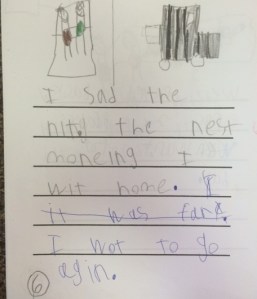 I sad the
nitj the nest
moncing I
wit home.
it was fank.
I wot to go
agin.
6